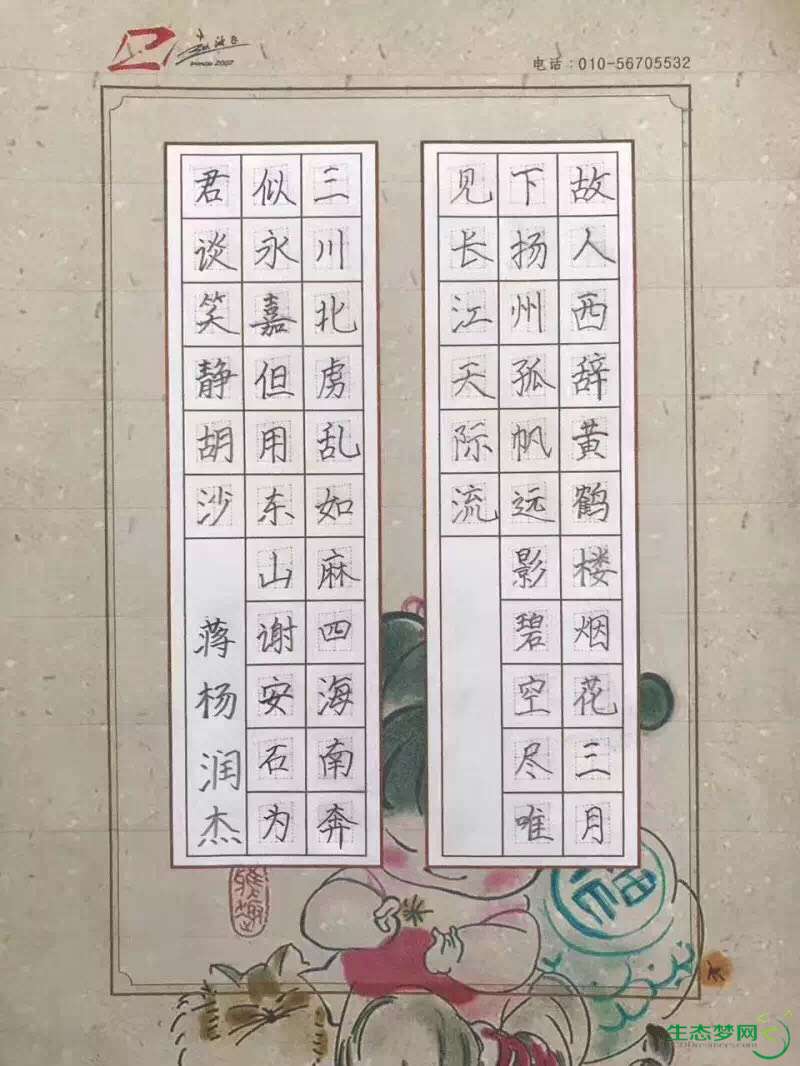 since 2007
电话：010-56705532
故人西辞黄鹤楼烟花三月
下扬州孤帆远影碧空尽唯
见长江天际流
三川北虏乱如麻四海南奔
似永嘉但用东山谢安石为
君谈笑静胡沙
蒋杨润杰
生态梦网